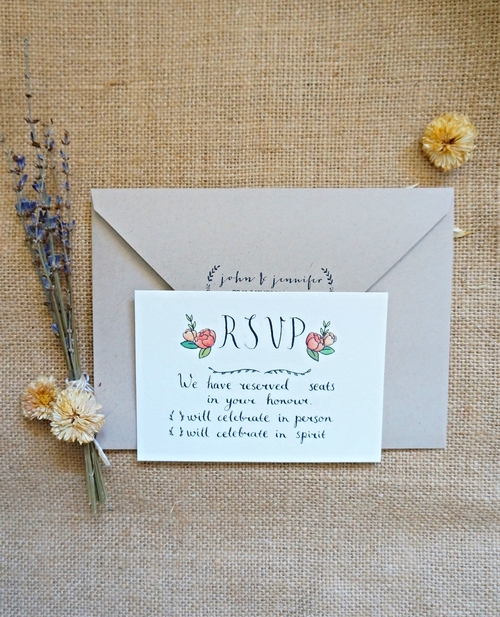 john & jennifer
RSVP
We have reserved seats
in your honour.
{ } will celebrate in person
{ } will celebrate in spirit